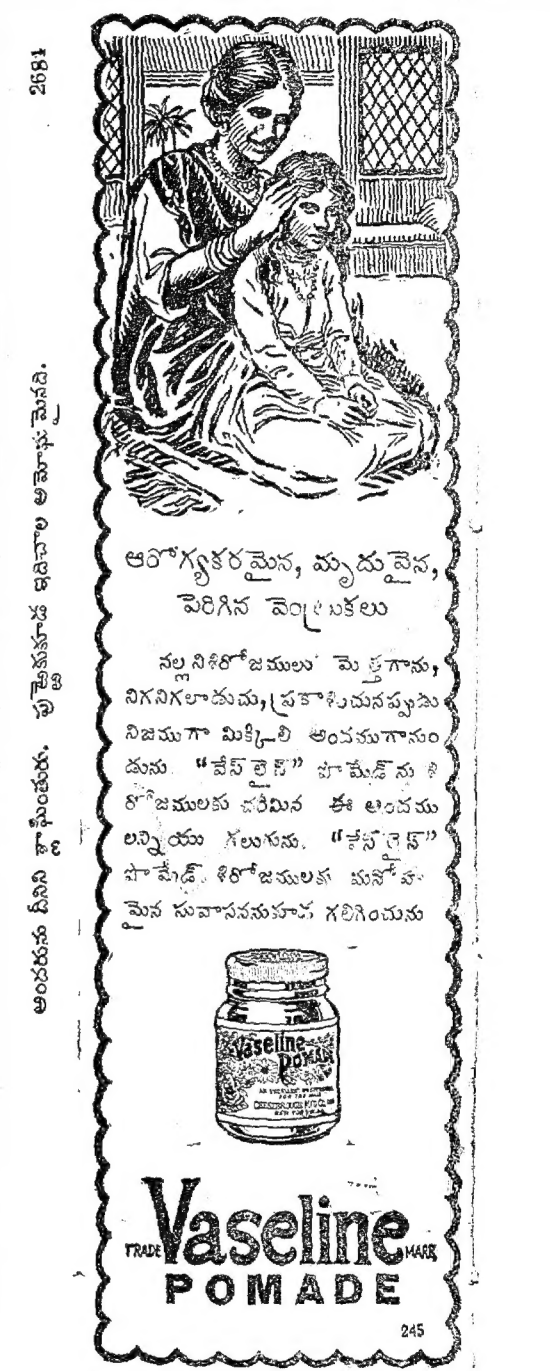 2684
అందరును దీనిని శ్లాఘింతురు. పుఱ్ఱెకుకూడ ఇదిచాల అమోఘమైనది.
ఆరోగ్యకరమైన, మృదువైన,
పెరిగిన వెంట్రుకలు
నల్లనిశిరోజములు మెత్తగాను,
నిగనిగలాడుచు, ప్రకాశించునప్పుడు
నిజముగా మిక్కిలి అందముగానుం
డును "వేస్‌లైన్" పొమేడ్‌ను శి
రోజములకు చరిమిన ఈ అందము
లన్నియు గలుగును. "వేస్‌లైన్"
పొమేడ్ శిరోజములకు
మైన సువాసననుకూడ గలిగించును
Vaseline
POMADE
CHESEBROUGH MFG. CO.
TRADE Vaseline MARK
POMADE
245